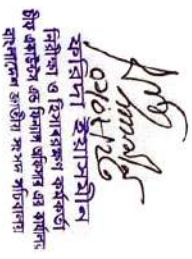 ফরিদা ইয়াসমীন
নিরীক্ষা ও হিসাবরক্ষণ কর্মকর্তা
চীফ একাউন্টস এন্ড ফিন্যান্স অফিসার এর কার্যালয়
বাংলাদেশ জাতীয় সংসদ সচিবালয়